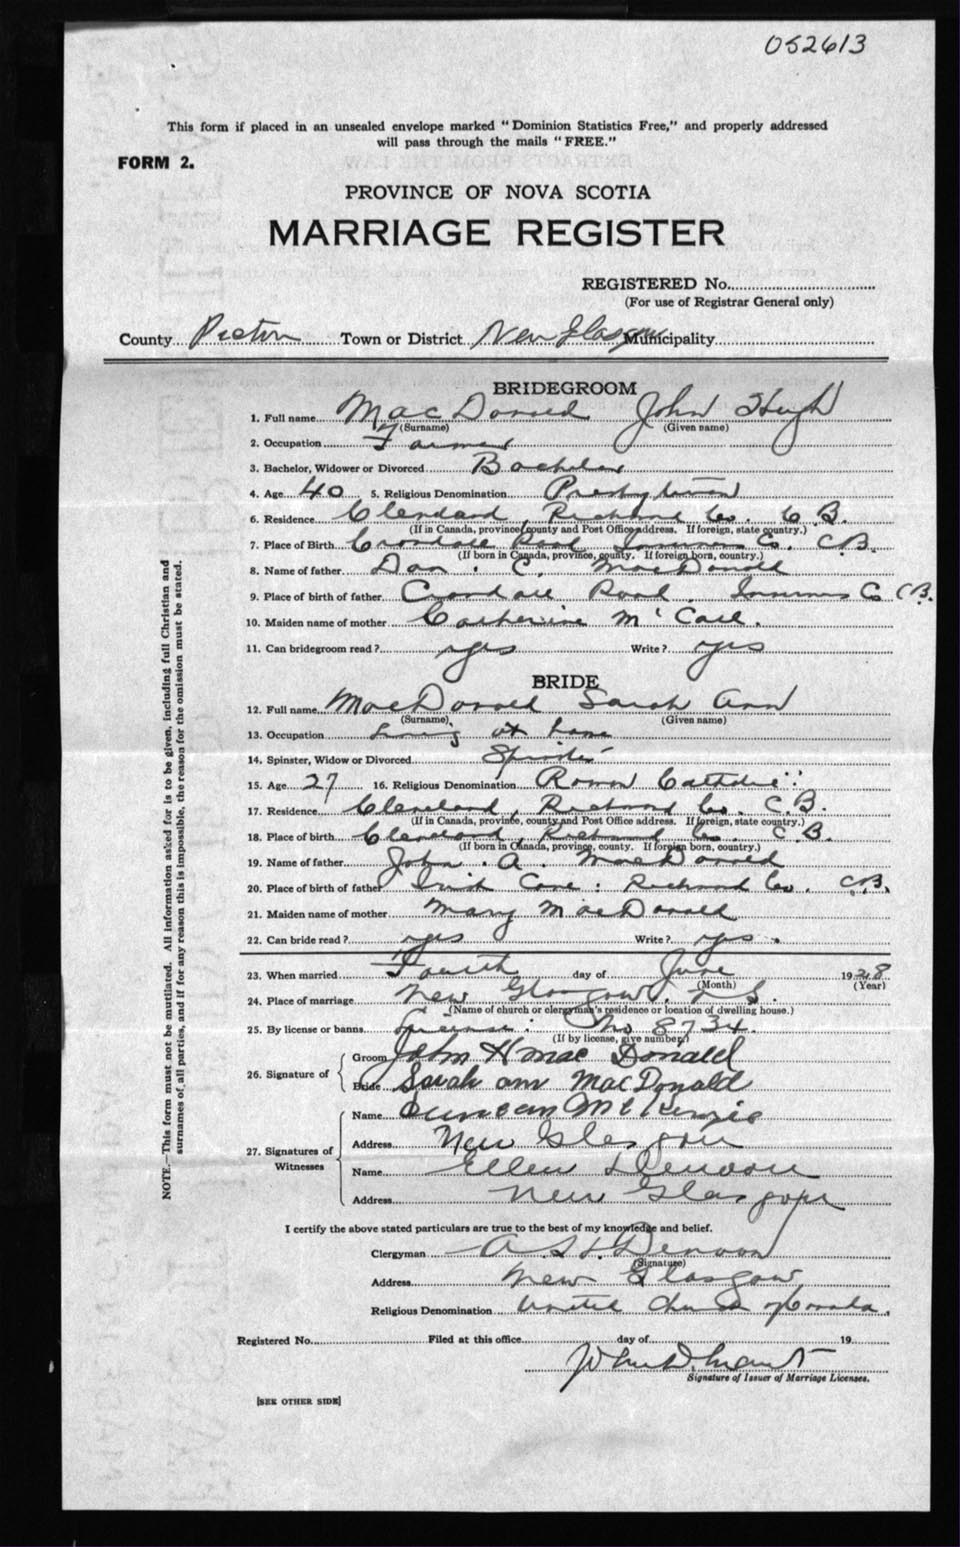 052613
This form if placed in an unsealed envelope marked "Dominion Statistics Free," and properly addressed
will pass through the mails "FREE."
FORM 2.
PROVINCE OF NOVA SCOTIA
MARRIAGE REGISTER
REGISTERED No.
(For use of Registrar General only)
County Pictou Town or District New Glasgow Municipality
BRIDEGROOM
1. Full name MacDonald John Hugh
(Surname) (Given name)
2. Occupation Farmer
3. Bachelor, Widower or Divorced Bachelor
4. Age 40 5. Religious Denomination Presbyterian
6. Residence Cleveland, Richmond Co. C.B.
(If in Canada, province, county and Post Office address. If foreign, state country.)
7. Place of Birth Road Inverness Co. C.B.
(If born in Canada, province, county. If foreign born, country.)
8. Name of father Dan. C. MacDonald
9. Place of birth of father Road. Inverness Co C.B.
10. Maiden name of mother Catherine Mc
11. Can bridegroom read? yes Write? yes
BRIDE
12. Full name MacDonald Sarah Ann
(Surname) (Given name)
13. Occupation Living at home
14. Spinster, Widow or Divorced Spinster
15. Age 27 16. Religious Denomination Roman Catholic
17. Residence Cleveland, Richmond Co. C.B.
(If in Canada, province, county and Post Office address. If foreign, state country.)
18. Place of birth Cleveland, Richmond Co. C.B.
(If born in Canada, province, county. If foreign born, country.)
19. Name of father John. A. MacDonald
20. Place of birth of father Irish Cove: Richmond Co. C.B.
21. Maiden name of mother Mary MacDonald
22. Can bride read? yes Write? yes.
23. When married Fourth day of June 1928
(Month) (Year)
24. Place of marriage New Glasgow, N S.
(Name of church or clergyman's residence or location of dwelling house.)
25. By license or banns License: No 8734
(If by license, give number.)
26. Signature of
Groom John H MacDonald
Bride Sarah ann MacDonald
27. Signatures of Witnesses
Name Duncan McKenzie
Address New Glasgow
Name Ellen Denoon
Address New Glasgow
I certify the above stated particulars are true to the best of my knowledge and belief.
Clergyman A. H. Denoon
(Signature)
Address New Glasgow
Religious Denomination United Church of Canada.
Registered No. Filed at this office day of 19
Signature of Issuer of Marriage Licenses.
[SEE OTHER SIDE]
NOTE.—This form must not be mutilated. All information asked for is to be given, including full Christian and
surnames of all parties, and if for any reason this is impossible, the reason for the omission must be stated.